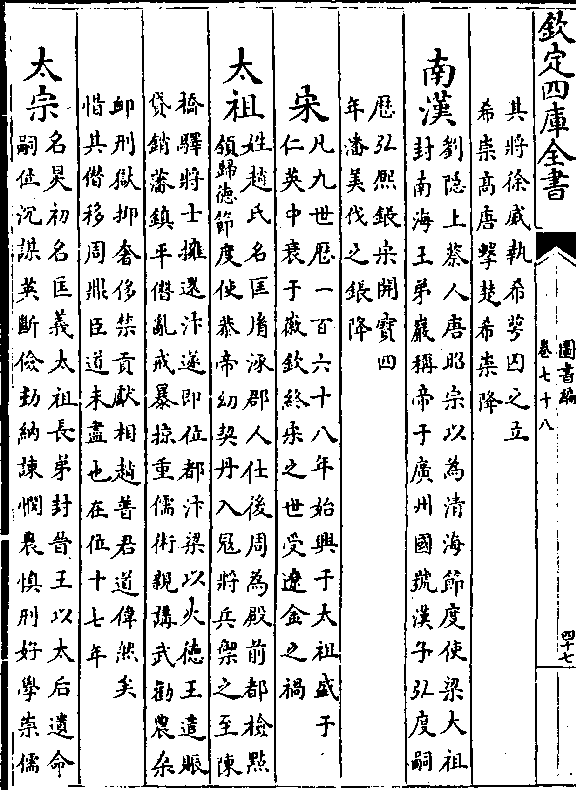 欽定四庫全書
圖書編
卷七十八
四十七
其將徐威執希萼囚之立
希崇高唐擊楚希崇降
南漢
劉隐上蔡人唐昭宗以為清海節度使梁大祖
封南海王弟巖稱帝于廣州國號漢子弘度嗣
歴弘熈鋹宋開寳四
年潘美伐之鋹降
宋
凡九世歴一百六十八年始興于太祖盛于
仁英中衰于徽欽終宋之世受遼金之禍
太祖
姓趙氏名匡𦙍涿郡人仕後周為殿前都檢㸃
領歸徳節度使恭帝幼契丹入冦將兵禦之至陳
橋驛將士擁還汴遂即位都汴梁以火德王遣賑
貸銷藩鎮平僭亂戒暴掠重儒術親講武勸農桑
䘏刑獄抑奢侈禁貢獻相趙普君道偉然矣
惜其僭移周鼎臣道未盡也在位十七年
太宗
名炅初名匡義太祖長弟封晉王以太后遺命
嗣位沉謀英斷儉勤納諫憫農慎刑好學崇儒